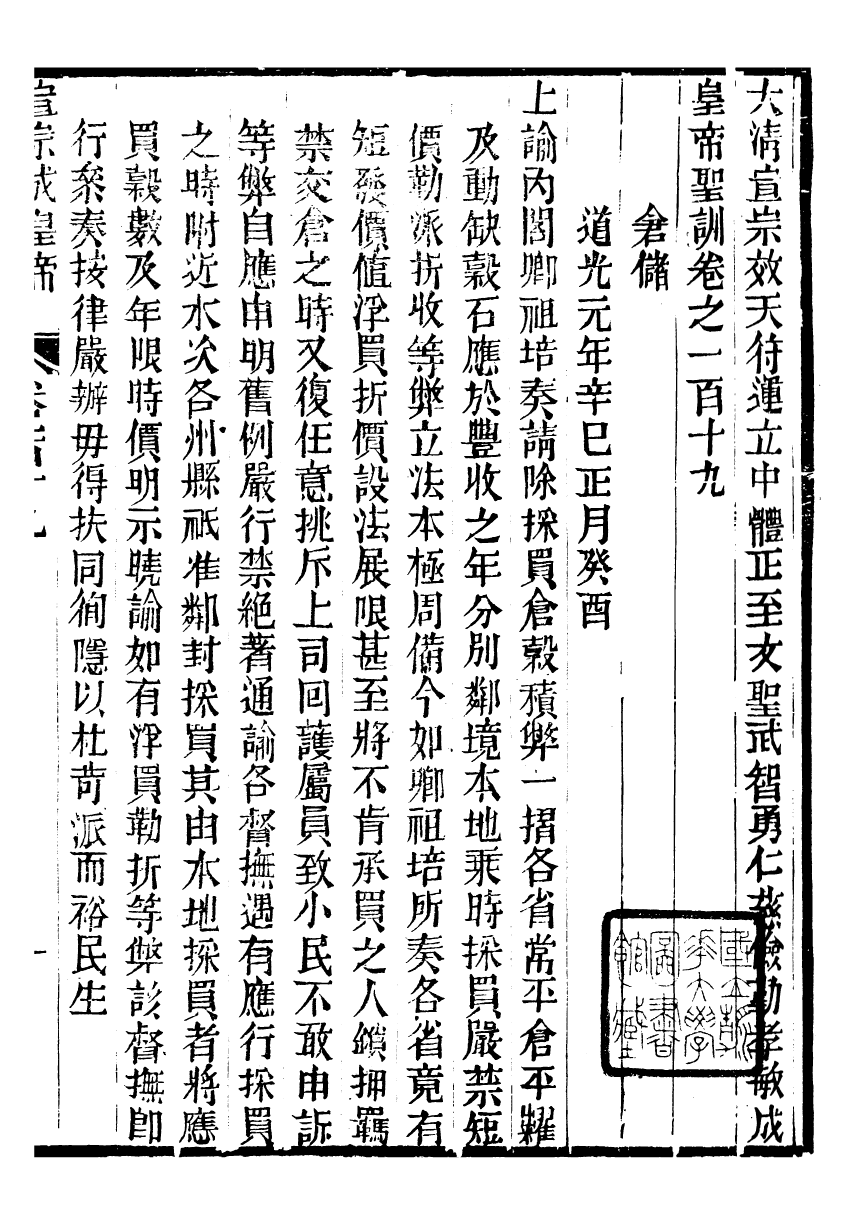 大淸宣宗效天符運立中體正至文聖武智勇仁慈儉勤孝敏成
皇帝聖訓卷之一百十九
倉儲
道光元年辛巳正月癸酉
上諭內閣卿祖培奏請除採買倉穀積弊一摺各省常平倉平糶
及動缺穀石應於豐收之年分別鄰境本地乘時採買嚴禁短
價勒派折收等弊立法本極周備今如卿祖培所奏各省竟有
短發價值浮買折價設法展限甚至將不肯承買之人鎖押羈
禁交倉之時又復任意挑斥上司回護屬員致小民不敢申訴
等弊自應申明舊例嚴行禁絕著通諭各督撫遇有應行採買
之時附近水次各州縣祇准鄰封採買其由本地採買者將應
買穀數及年限時價明示曉諭如有浮買勒折等弊該督撫卽
行叅奏按律嚴辦毋得扶同徇隱以杜苛派而裕民生
宣宗成皇帝 卷一百十九 一
國立北平大學圖書館